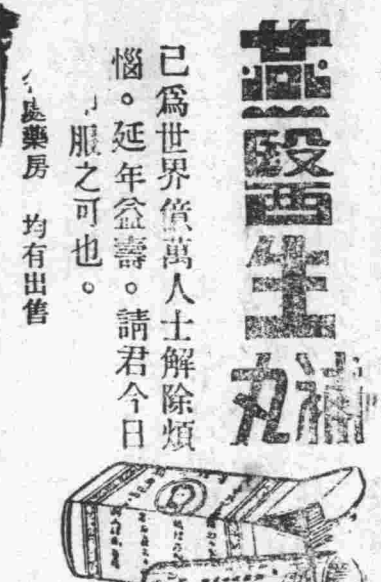 燕醫生
補丸
已爲世界億萬人士解除煩
惱。延年益壽。請君今日
服之可也。
處藥房 均有出售